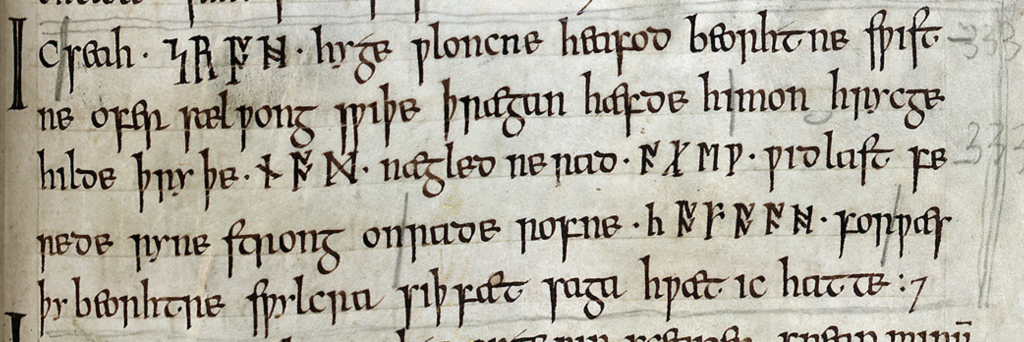 IC seah · ᛋᚱᚩᚻ · hyge ƿloncne heafod beorhtne sƿift
ne ofer sælƿong sƿiþe þrægan hæfde himon hrycge
hilde þryþe · ᚾᚩᛗ · nægled ne rad · ᚪᚷᛖᚹ · ƿidlast fe
rede ryne strong onrade rofne · ᚳᚩᚠᚩᚪᚻ · forƿæs
þy beorhtre sƿylcra siþfæt saga hƿæt ic hatte :7